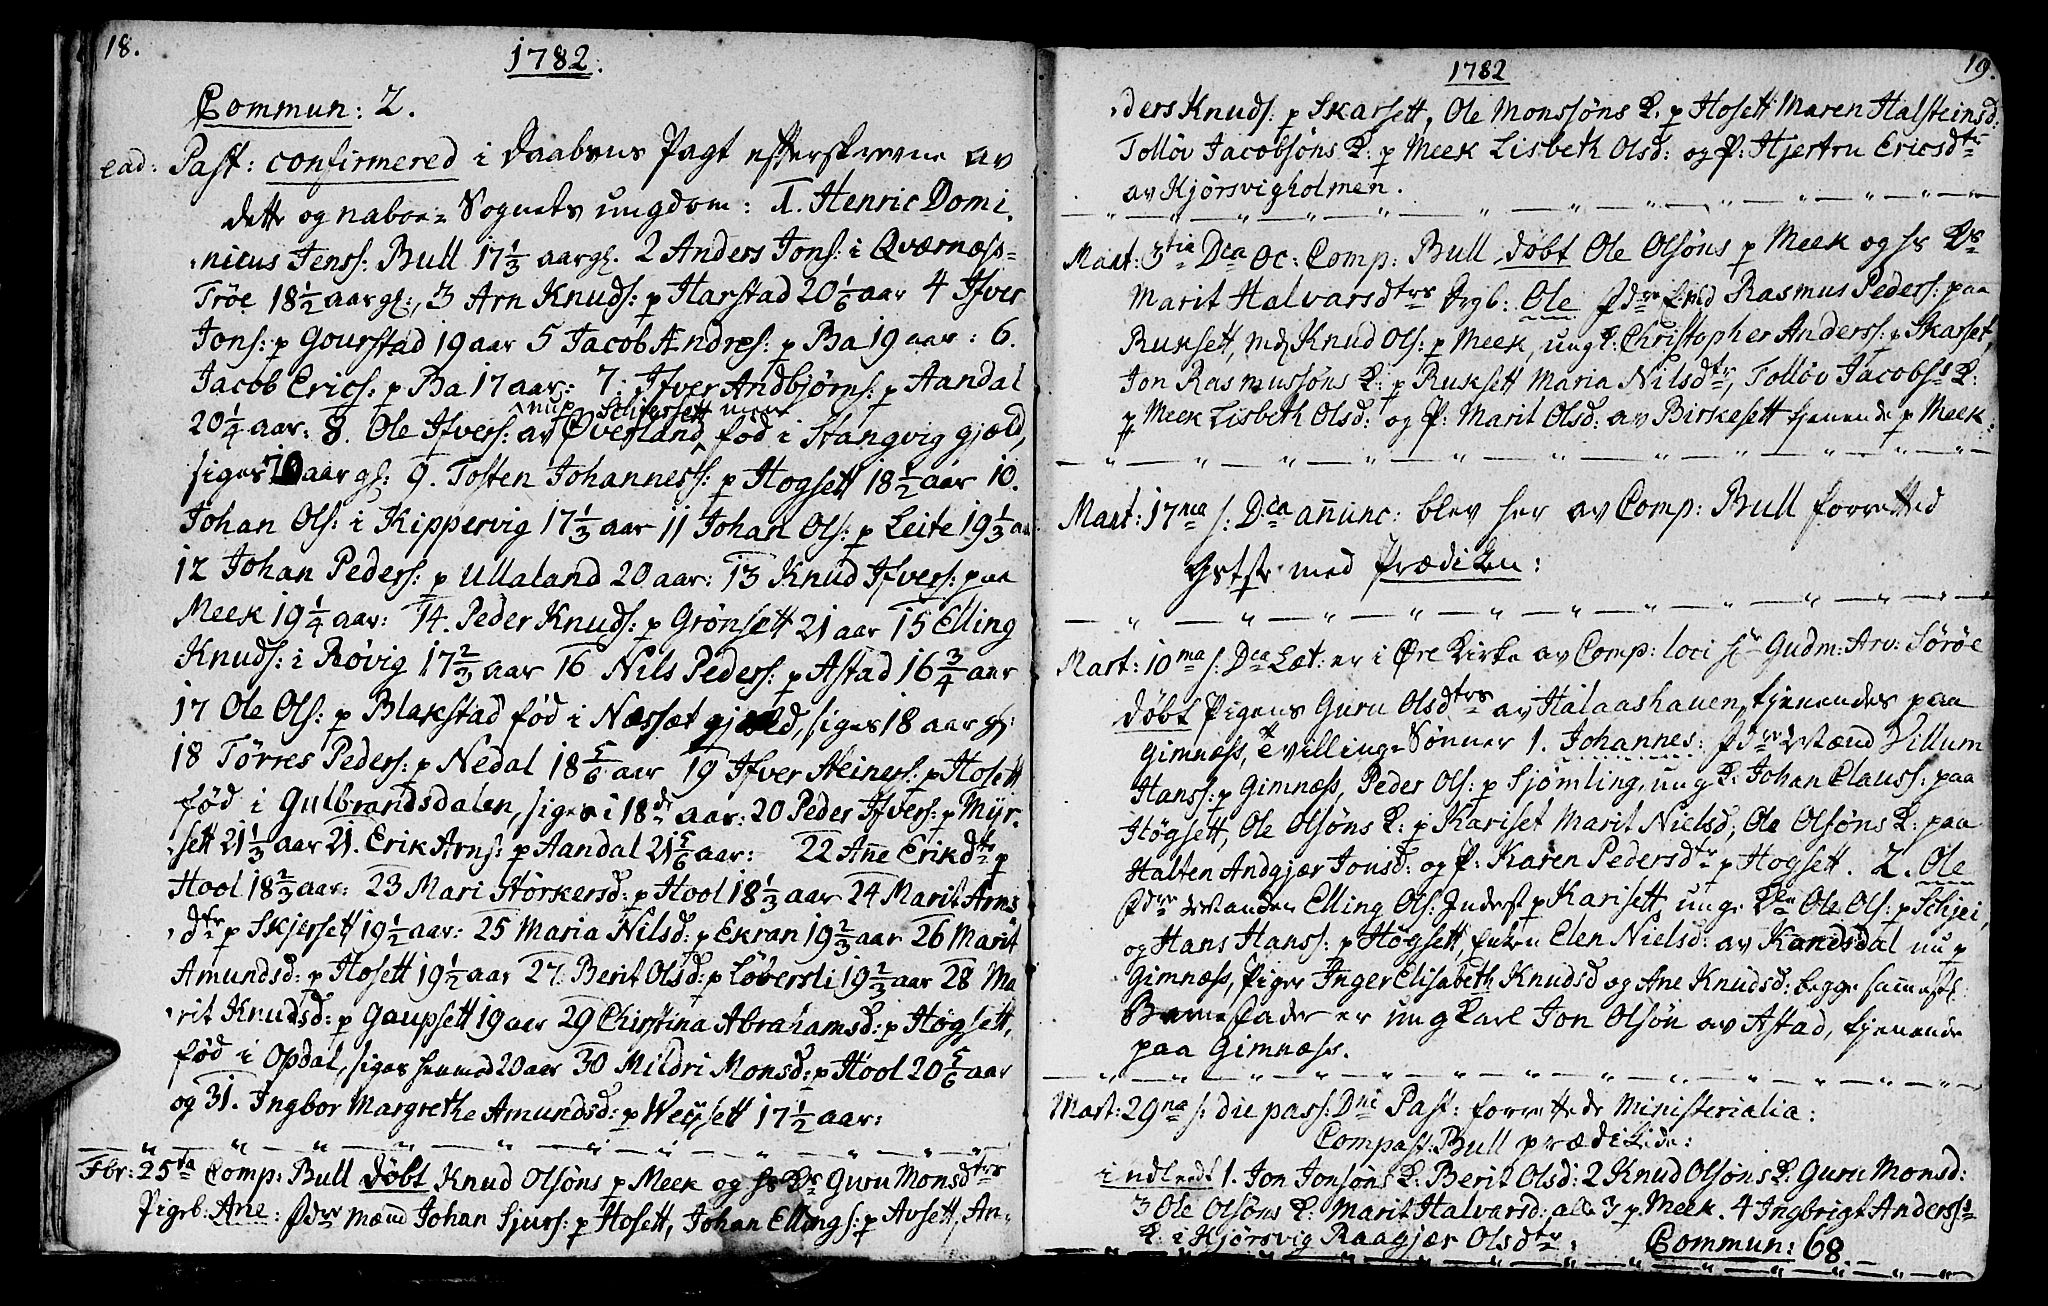 18.
1782.
Commun: 2.
ead: Past: confirmered i Daabens Pagt efterskrevne av
dette og naboe-Sognets ungdom: 1. Henric Domi-
nicus Jenss: Bull 17 1/3 aargl. 2 Anders Jons: i Qværnæss-
Tröe 18 1/2 aargl:, 3 Arn Knuds: p Harstad 20 1/6 aar 4 Ifver
Jons: p Gourstad 19 aar 5 Jacob Andres: p Ba 19 aar: 6.
Jacob Erics: p Ba 17 aar: 7. Ifver Andbjörns: p Aandal
20 1/4 aar: 8. Ole Ifvers: av Øverland, nu p Schjerssett fød i Stangvig gjæld,
siges aar gl: 9. Tosten Johanness: p Hogsett 18 1/2 aar 10.
Johan Ols: i Kippervig 17 1/3 aar 11 Johan Ols: p Leite 19 1/3 aar
12 Johan Peders: p Ullaland 20 aar: 13 Knud Ifvers: paa
Meek 19 1/4 aar: 14. Peder Knuds: p Grönsett 21 aar 15 Elling
Knuds: i Rövig 17 2/3 aar 16 Nils Peders: p Astad 16 3/4 aar
17 Ole Ols: p Blakstad fød i Næsset gjæld, siges 18 aar gl:
18 Törres Peders: p Nedal 18 5/6 aar 19 Ifver Steiners: p Hosett
fød i Gulbrandsdalen, siges i 18de aar: 20 Peder Ifvers: p Myr-
sett 21 1/3 aar 21. Erik Arns: p Aandal 21 5/6 aar: 22 Añe Erikdtr p
Hool 18 2/3 aar: 23 Mari Störkersd: p Hool 18 1/3 aar 24 Marit Arns
dtr p Skjersett 19 1/2 aar: 25 Maria Nilsd: p Ekran 19 2/3 aar 26 Marit
Amundsd: p Hosett 19 1/2 aar 27. Berit Olsd: p Löversli 19 2/3 aar 28 Ma
rit Knudsd: p Gaupsett 19 aar 29 Christina Abrahamsd: p Högsett,
fød i Opdal, siges henved 20 aar 30 Mildri Monsd: p Hool 20 5/6 aar
og 31. Ingbor Margrethe Amundsd: p Weysett 17 1/2 aar:
Fbr: 25ta Comp: Bull döbt Knud Olsöns p Meek og hs Ks Guru Monsdtrs
Pigeb. Ane: Fdre mænd Johan Sjurs: p Hosett, Johan Ellings: p Avsett, An-
1782
19.
ders Knuds: p Skarsett, Ole Monssöns K. p Hosett Maren Halsteinsd:
Tollöv Jacobsöns K: p Meek Lisbeth Olsd: og P: Hjertru Ericsdtr
av Kjörsvigholmen.
Mart: 3tia Dca Oc: Comp: Bull döbt Ole Olsöns p Meek og hs Ks
Marit Halvarsdtrs drgb: Ole Fdre Rasmus Peders: paa
Ruksett, Knud Ols: p Meek, ungk: Christopher Anderss: p Skarset,
Jon Rasmussöns K: p Ruksett Maria Nilsdtr, Tollöv Jacobss K:
p Meek Lisbeth Olsd: og P: Marit Olsd: av Birkesett tjenende p Meek:
Mart: 17na s: Dca añunc: blev her av Comp: Bull forretted
Gstste med Prædiken:
Mart: 10ma s: Dca Læt: er i Øre Kirke av Comp: loci Hr Gudm: Arv: Söröe
döbt Pigens Guru Olsdtrs av Halaashauen, tjenendes paa
Gimnæss, tvillinge Sönner 1. Johannes: Fdre Mænd Villum
Hanss: p Gimnæss, Peder Ols: p Sjömling, ungk. Johan Clauss: paa
Högsett, Ole Olsöns K: p Kariset Marit Nielsd, Ole Olsöns K: paa
Halten Andgjær Jonsd: og P: Karen Pedersdtr p Hogsett. 2. Ole
Fdre Manden Elling Ols: Inderst p Karisett ungk Ole Ols: p Schjei,
og Hans Hanss: p Högsett, Enken Elen Nielsd: av Kandsdal nu p
Gimnæss, Piger Inger Elisabeth Knudsd og Ane Knudsd: begge samesteds.
Barnefader er ungkarl Jon Olsön av Astad, tjenende
paa Gimnæss.
Mart: 29na s: die pass: Dni Past: forrettede Ministerialia:
Compast: Bull prædikede:
indledt 1. Jon Jonsöns K: Berit Olsd: 2 Knud Olsöns K: Guru Monsd:
3 Ole Olsöns K: Marit Halvarsd: alle 3 p. Meek. 4 Ingbrigt Anderss
K. i Kjörsvig Raagjær Olsdtr: Commun: 68.